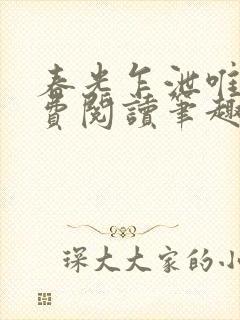 春光乍泄唯
費閱讀筆趣
琛大大家的小